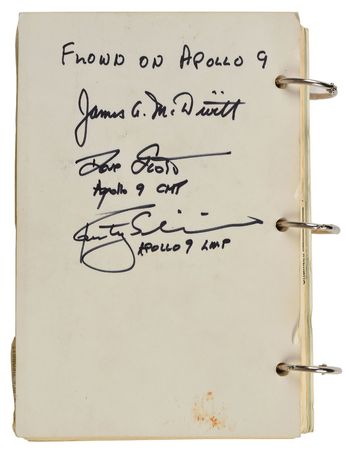 FLOWN ON APOLLO 9
James A. McDivitt
Dave Scott
Apollo 9 CMP
Rusty Schweickart
APOLLO 9 LMP